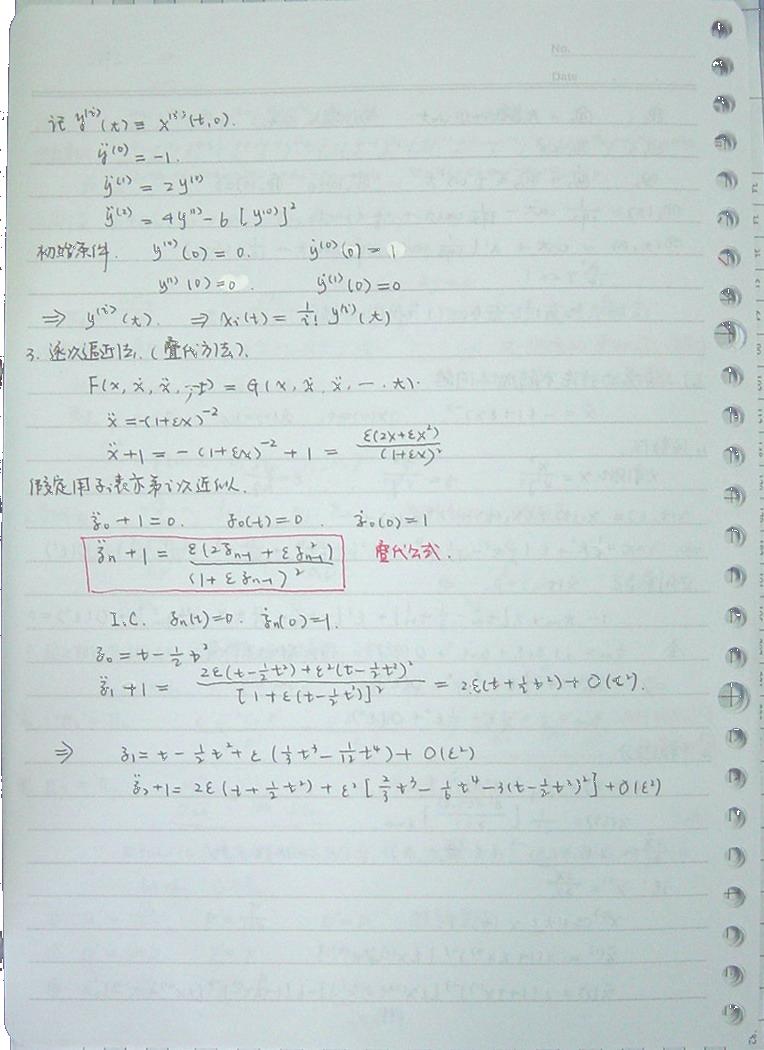 No.
Date
记 y⁽ⁱ⁾(t) ≡ x⁽ⁱ⁾(t,0).
ÿ⁽⁰⁾ = -1.
ÿ⁽¹⁾ = 2y⁽⁰⁾
ÿ⁽²⁾ = 4y⁽¹⁾ - 6[y⁽⁰⁾]²
初始条件. y⁽⁰⁾(0) = 0. ẏ⁽⁰⁾(0) = 1
y⁽¹⁾(0) = 0. ẏ⁽¹⁾(0) = 0
⇒ y⁽ⁱ⁾(t). ⇒ xᵢ(t) = 1/i! y⁽ⁱ⁾(t)
3. 逐次逼近法. (叠代方法).
F(x, ẋ, ẍ, …, t) = G(x, ẋ, ẍ, …, t).
ẍ = -(1+εx)⁻²
ẍ + 1 = -(1+εx)⁻² + 1 = ε(2x+εx²)/(1+εx)²
假定用 ʒᵢ 表示第 i 次近似.
ʒ̈₀ + 1 = 0. ʒ₀(t) = 0. ʒ̇₀(0) = 1
ʒ̈ₙ + 1 = ε(2ʒₙ₋₁ + εʒ²ₙ₋₁)/(1 + εʒₙ₋₁)² 叠代公式.
I.C. ʒₙ(t) = 0. ʒ̇ₙ(0) = 1.
ʒ₀ = t - ½t²
ʒ̈₁ + 1 = 2ε(t-½t²) + ε²(t-½t²)²/[1+ε(t-½t²)]² = 2ε(t+½t²) + O(ε²).
⇒ ʒ₁ = t - ½t² + ε(⅓t³ - 1/12 t⁴) + O(ε²)
ʒ̈₂ + 1 = 2ε(t+½t²) + ε²[⅔t³ - ⅙t⁴ - 3(t-½t²)²] + O(ε²)